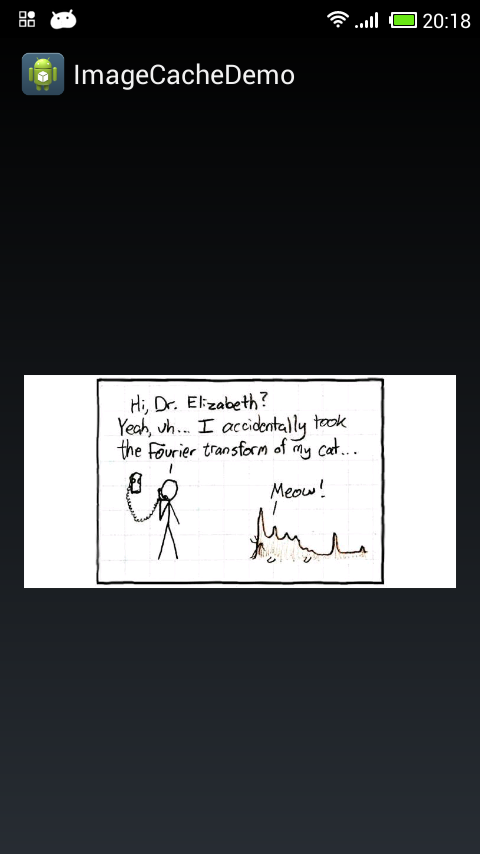 20:18
ImageCacheDemo
Hi, Dr. Elizabeth?
Yeah, uh... I accidentally took
the Fourier transform of my cat...
Meow!